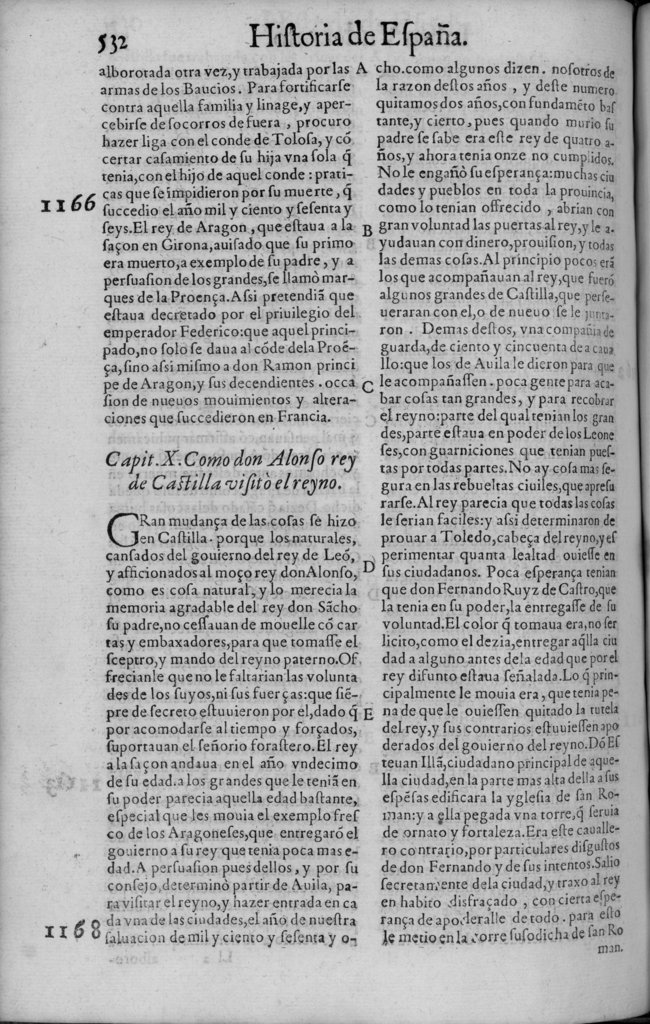 532
Historia de España.
alborotada otra vez,y trabajada por las
armas de los Baucios. Para fortificarse
contra aquella familia y linage,y aper-
cebirse de socorros de fuera , procuro
hazer liga con el conde de Tolosa, y cõ
certar casamiento de su hija vna sola q̃
tenia,con el hijo de aquel conde : prati-
cas que se impidieron por su muerte , q̃
1166
succedio el año mil y ciento y sesenta y
seys.El rey de Aragon , que estaua a la
saçon en Girona,auisado que su primo
era muerto,a exemplo de su padre , y a
persuasion de los grandes,se llamò mar-
ques de la Proença.Assi pretendiã que
estaua decretado por el priuilegio del
emperador Federico:que aquel princi-
pado,no solo se daua al cõde dela Proẽ-
ça,sino assi mismo a don Ramon princi
pe de Aragon,y sus decendientes . occa
sion de nueuos mouimientos y altera-
ciones que succedieron en Francia.
Capit.X.Como don Alonso rey
de Castilla visitò el reyno.
GRan mudança de las cosas se hizo
en Castilla . porque los naturales,
cansados del gouierno del rey de Leõ,
y afficionados al moço rey don Alonso,
como es cosa natural , y lo merecia la
memoria agradable del rey don Sãcho
su padre,no cessauan de mouelle cõ car
tas y embaxadores,para que tomasse el
sceptro,y mando del reyno paterno.Of
frecianle que no le faltarian las volunta
des de los suyos,ni sus fuerças:que siẽ-
pre de secreto estuuieron por el,dado q̃
por acomodarse al tiempo y forçados,
suportauan el señorio forastero.El rey
a la saçon andaua en el año vndecimo
de su edad.a los grandes que le teniã en
su poder parecia aquella edad bastante,
especial que les mouia el exemplo fres
co de los Aragoneses,que entregarõ el
gouierno a su rey que tenia poca mas e-
dad.A persuasion pues dellos , y por su
consejo,determinò partir de Auila, pa-
ra visitar el reyno,y hazer entrada en ca
da vna de las ciudades,el año de nuestra
1168
saluacion de mil y ciento y sesenta y o-
A
B
C
D
E
cho.como algunos dizen. nosotros de
la razon destos años , y deste numero
quitamos dos años,con fundamẽto bas
tante,y cierto , pues quando murio su
padre se sabe era este rey de quatro a-
ños,y ahora tenia onze no cumplidos.
No le engañò su esperança:muchas ciu
dades y pueblos en toda la prouincia,
como lo tenian offrecido , abrian con
gran voluntad las puertas al rey,y le a-
yudauan con dinero,prouision,y todas
las demas cosas.Al principio pocos erã
los que acompañauan al rey,que fuerõ
algunos grandes de Castilla,que perse-
ueraran con el,o de nueuo se le junta-
ron . Demas destos, vna compañia de
guarda,de ciento y cincuenta de a caua
llo:que los de Auila le dieron para que
le acompañassen . poca gente para aca-
bar cosas tan grandes, y para recobrar
el reyno:parte del qual tenian los gran
des,parte estaua en poder de los Leone
ses,con guarniciones que tenian pues-
tas por todas partes.No ay cosa mas se-
gura en las rebueltas ciuiles,que apresu
rarse.Al rey parecia que todas las cosas
le serian faciles:y assi determinaron de
prouar a Toledo,cabeça del reyno,y es
perimentar quanta lealtad ouiesse en
sus ciudadanos. Poca esperança tenian
que don Fernando Ruyz de Castro,que
la tenia en su poder,la entregasse de su
voluntad.El color q̃ tomaua era,no ser
licito,como el dezia,entregar aq̃lla ciu
dad a alguno antes dela edad que por el
rey difunto estaua señalada.Lo q̃ prin-
cipalmente le mouia era , que tenia pe-
na de que le ouiessen quitado la tutela
del rey,y sus contrarios estuuiessen apo
derados del gouierno del reyno.Dõ Es
teuan Illã,ciudadano principal de aque-
lla ciudad,en la parte mas alta della a sus
espẽsas edificara la yglesia de san Ro-
man:y a ella pegada vna torre,q̃ seruia
de ornato y fortaleza.Era este cauallе-
ro contrario,por particulares disgustos
de don Fernando y de sus intentos.Salio
secretamente dela ciudad,y traxo al rey
en habito disfraçado , con cierta espe-
rança de apoderalle de todo . para esto
le metio en la torre susodicha de san Ro
man.